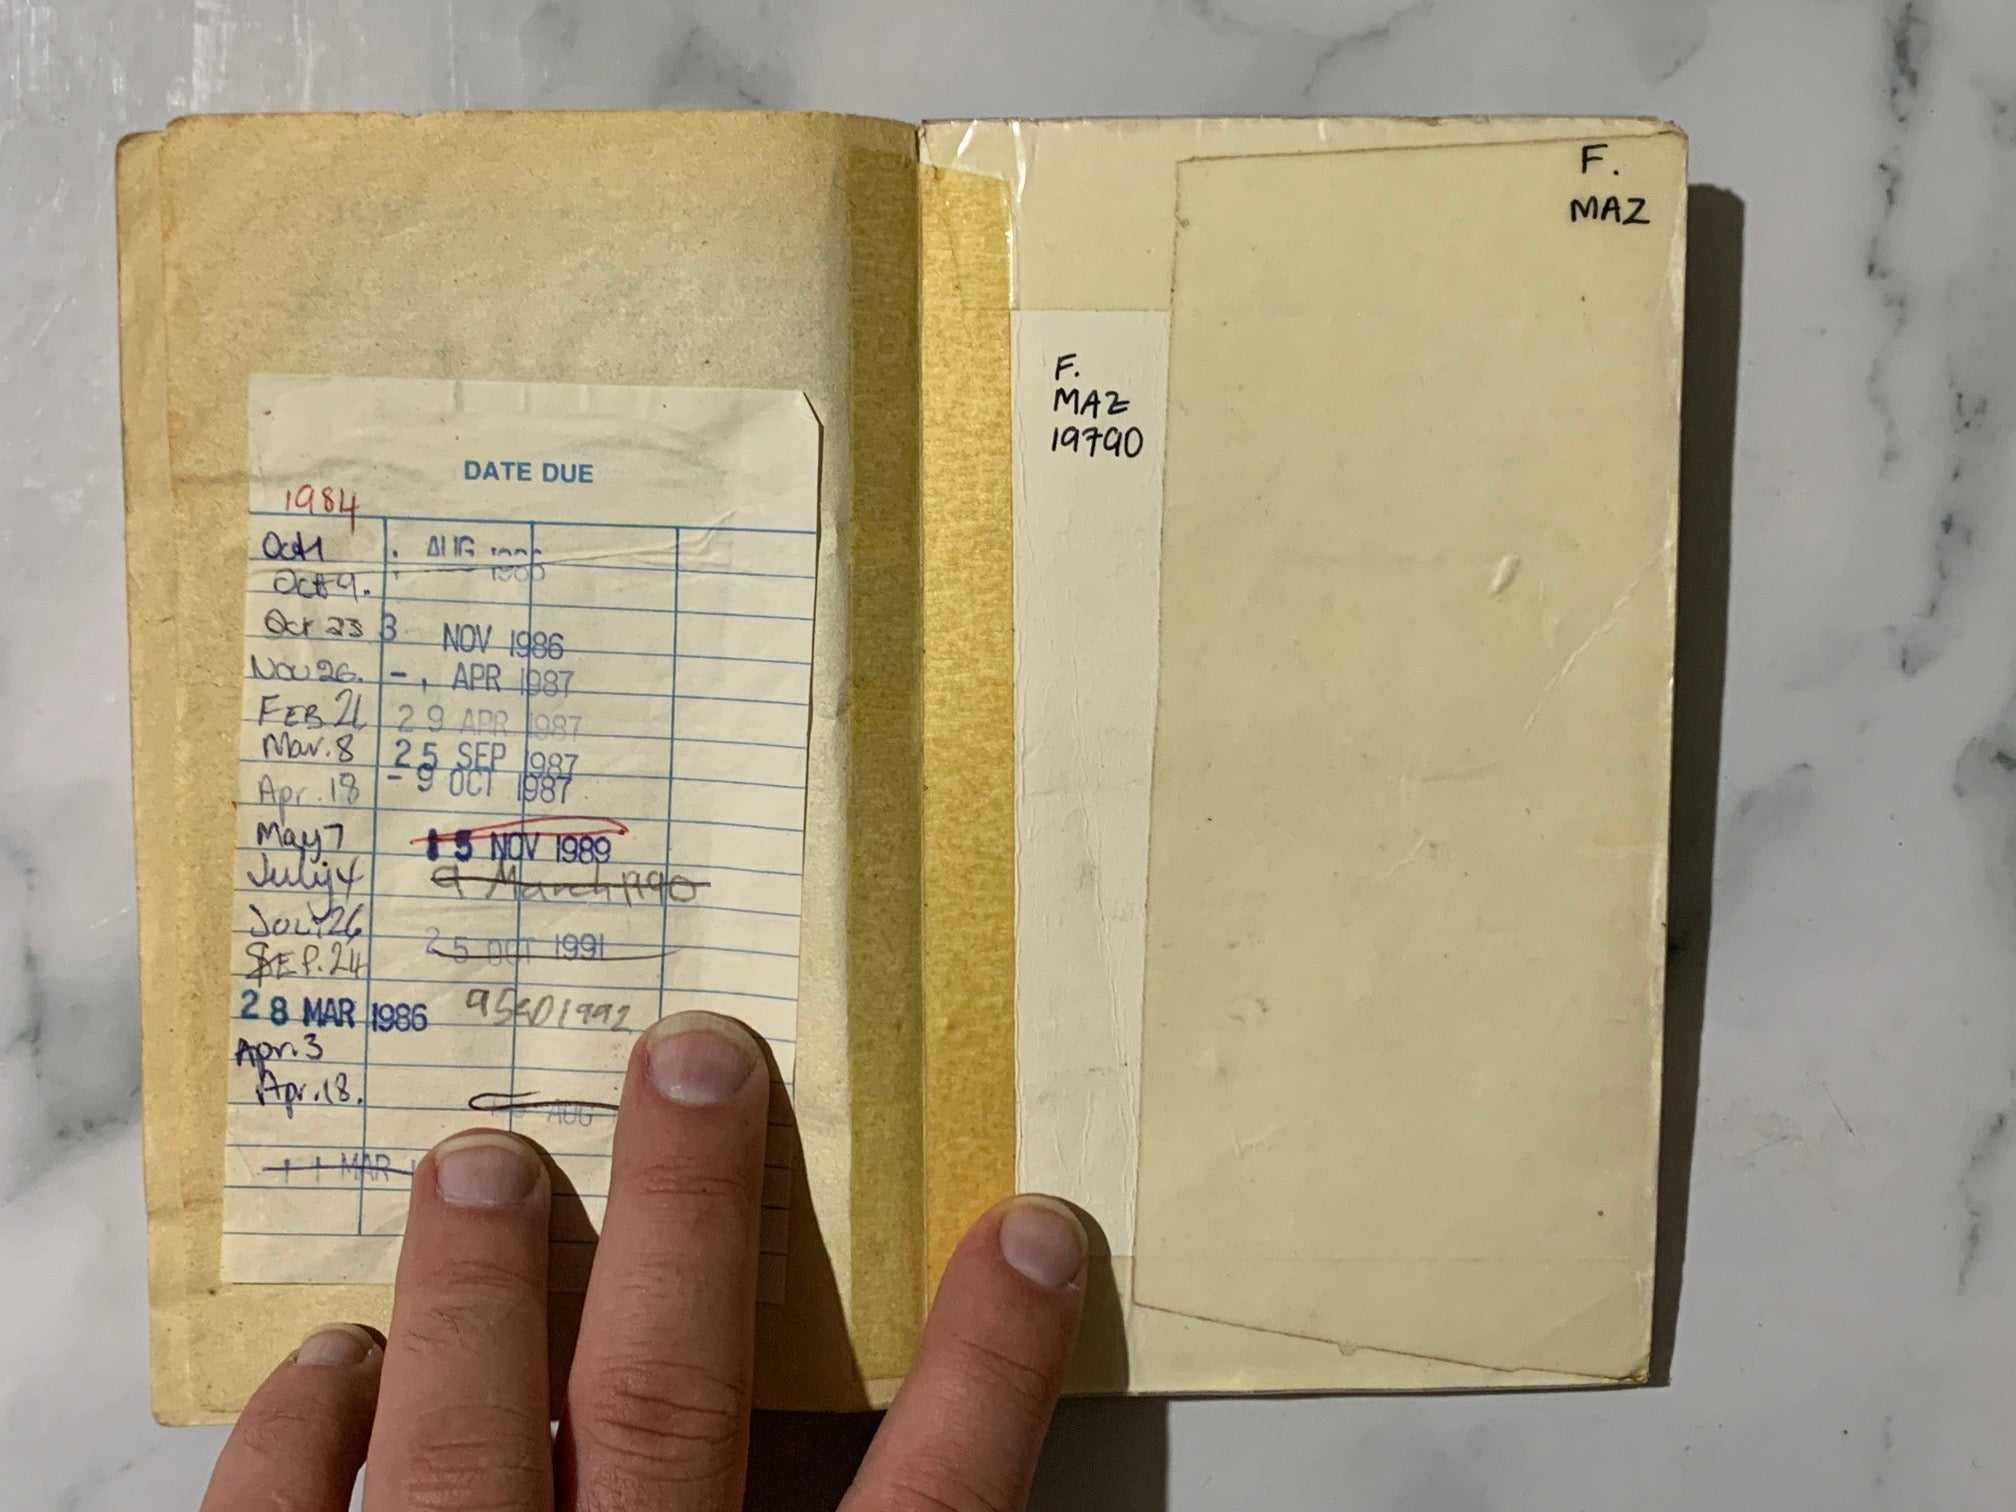 DATE DUE
1984
Oct 1
Oct 9.
Oct 23
Nov 26.
FEB 21
Mar. 8
Apr. 18
May 7
July 4
JULY 26
SEP. 24
28 MAR 1986
Apr. 3
Apr. 18.
11 MAR
AUG
3 NOV 1986
-, APR 1987
29 APR 1987
25 SEP 1987
-9 OCT 1987
15 NOV 1989
9 March 1990
25 OCT 1991
1992
AUG
F.
MAZ
19790
F.
MAZ